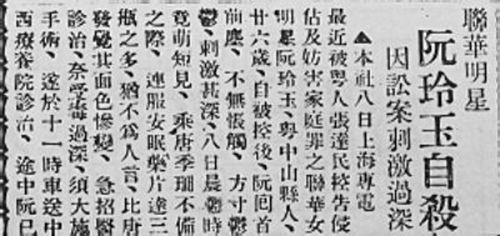 聯華明星
阮玲玉自殺
因訟案刺激過深
▲本社八日上海專電
最近被粵人張達民控告侵
佔及妨害家庭罪之聯華女
明星阮玲玉、粵中山縣人、
廿六歲、自被控後、阮回首
前塵、不無悵觸、方寸鬱
鬱、刺激甚深、八日晨時
竟萌短見、乘唐季珊不備
之際、連服安眠藥片達三
瓶之多、猶不為人言、比唐
發覺其面色慘變、急招醫
診治、奈受毒過深、須大施
手術、遂於十一時車送中
西療養院診治、途中阮已